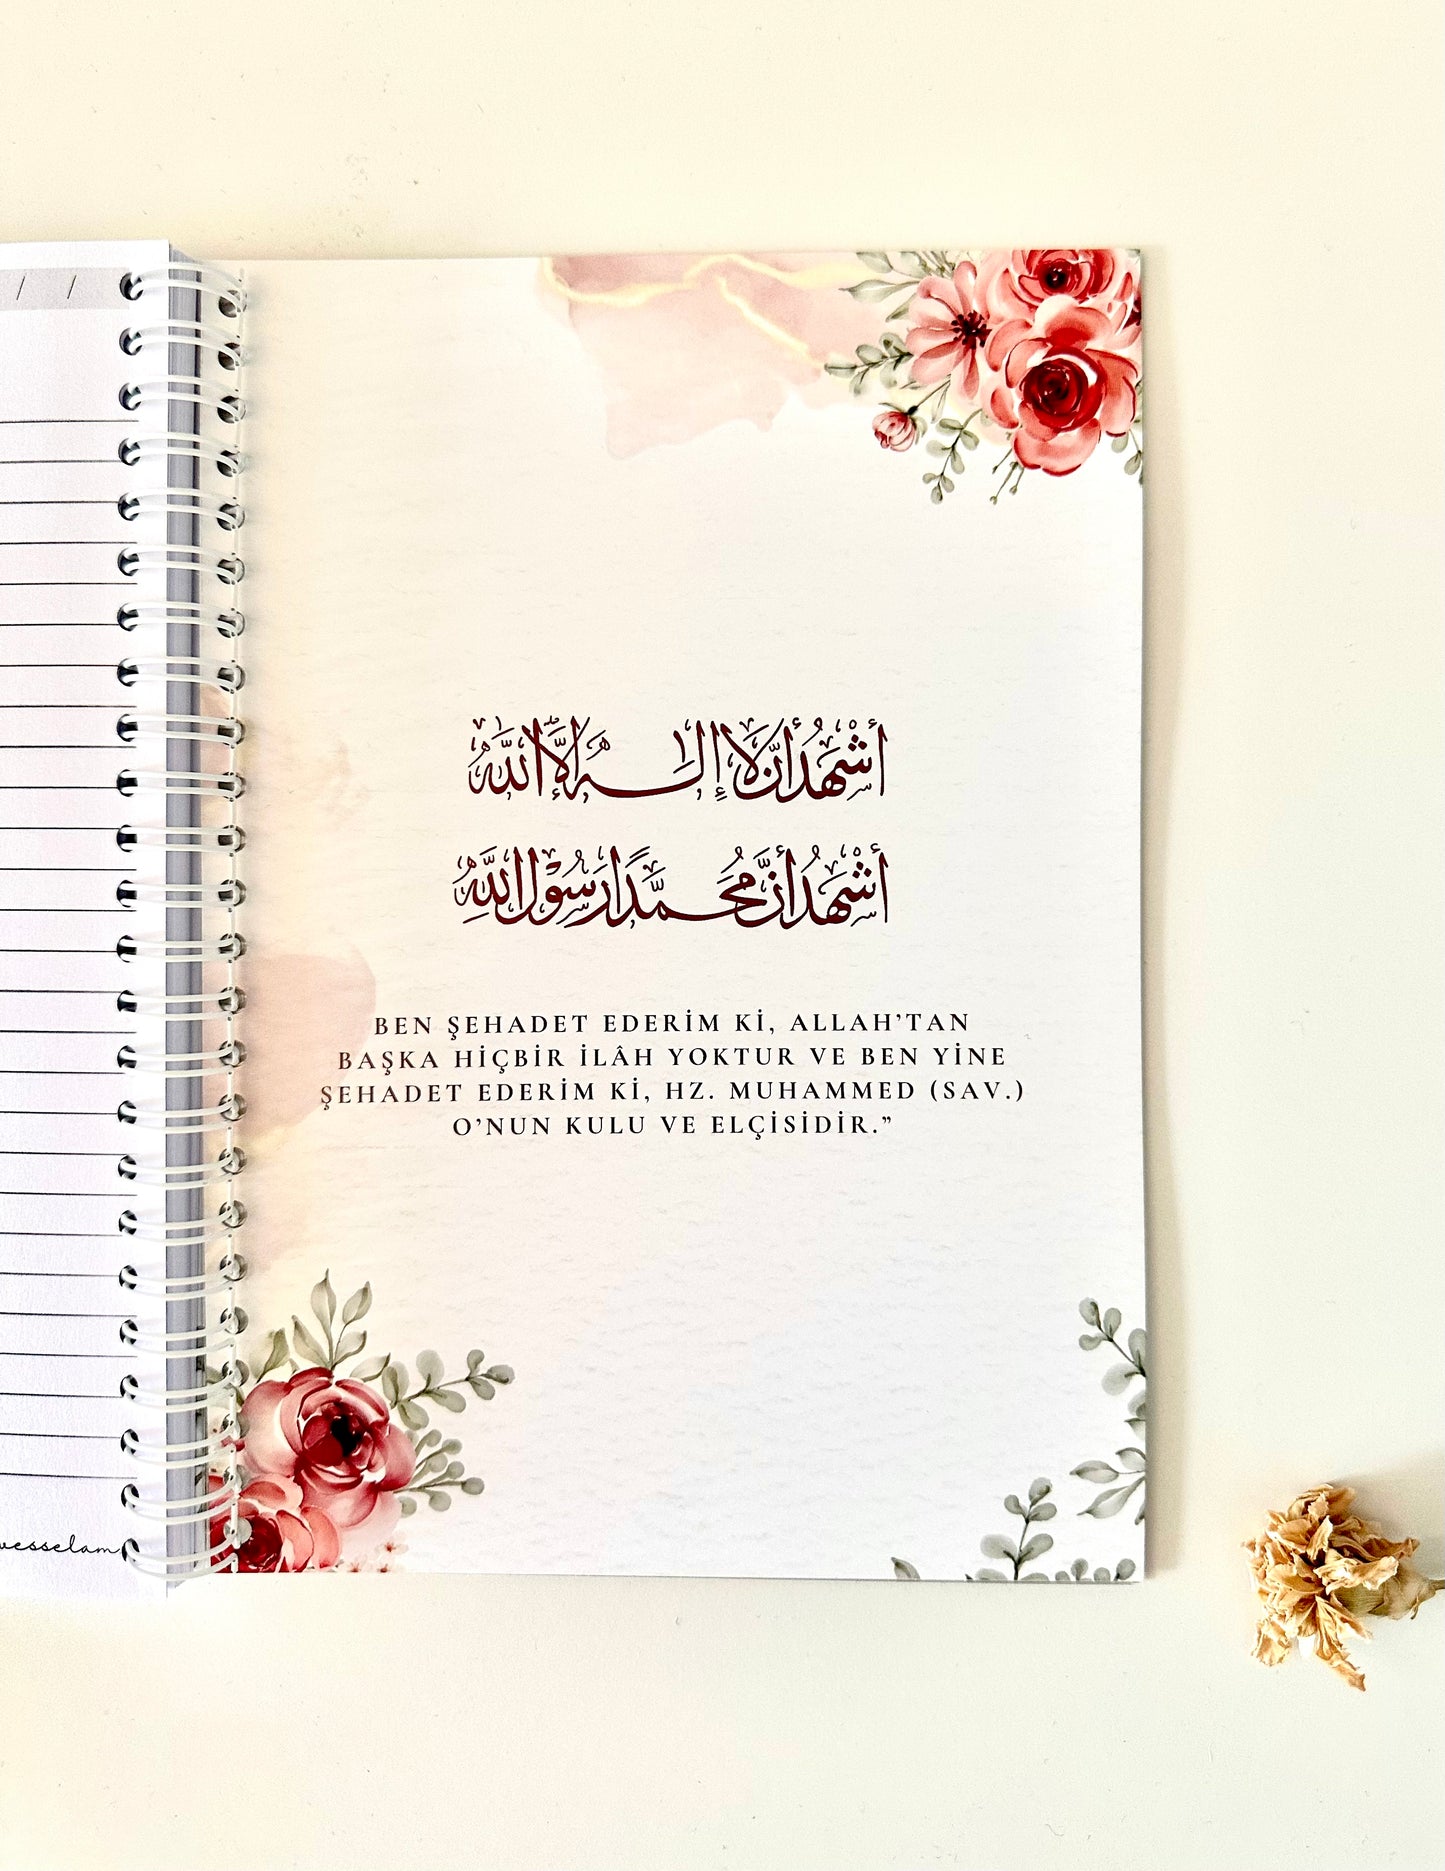 / /
أَشْهَدُ أَنْ لَا إِلٰهَ إِلَّا اللّٰهُ
أَشْهَدُ أَنَّ مُحَمَّدًا رَسُوْلُ اللّٰهِ
BEN ŞEHADET EDERİM Kİ, ALLAH’TAN
BAŞKA HİÇBİR İLÂH YOKTUR VE BEN YİNE
ŞEHADET EDERİM Kİ, HZ. MUHAMMED (SAV.)
O’NUN KULU VE ELÇİSİDİR.”
vesselam